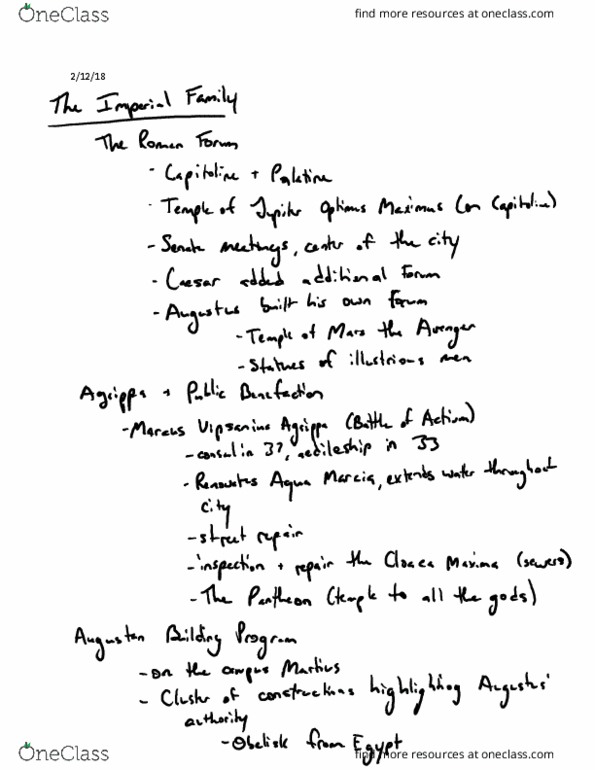 OneClass
find more resources at oneclass.com
2/12/18
The Imperial Family
The Roman Forum
- Capitoline + Palatine
- Temple of Jupiter Optimus Maximus (on Capitoline)
- Senate meetings, center of the city
- Caesar added additional forum
- Augustus built his own forum
- Temple of Mars the Avenger
- Statues of illustrious men
Agrippa + Public Benefaction
- Marcus Vipsanius Agrippa (Battle of Actium)
- consul in 37, aedileship in 33
- Renovates Aqua Marcia, extends water throughout
city
- street repair
- inspection + repair the Cloaca Maxima (sewers)
- The Pantheon (temple to all the gods)
Augustan Building Program
- on the campus Martius
- Cluster of constructions highlighting Augustus'
authority
- Obelisk from Egypt
OneClass
find more resources at oneclass.com